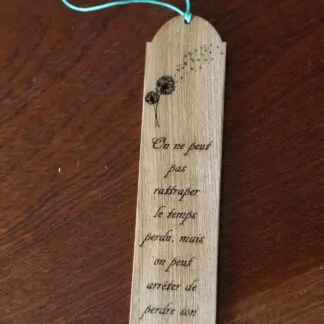 On ne peut
pas
rattraper
le temps
perdu, mais
on peut
arrêter de
perdre son